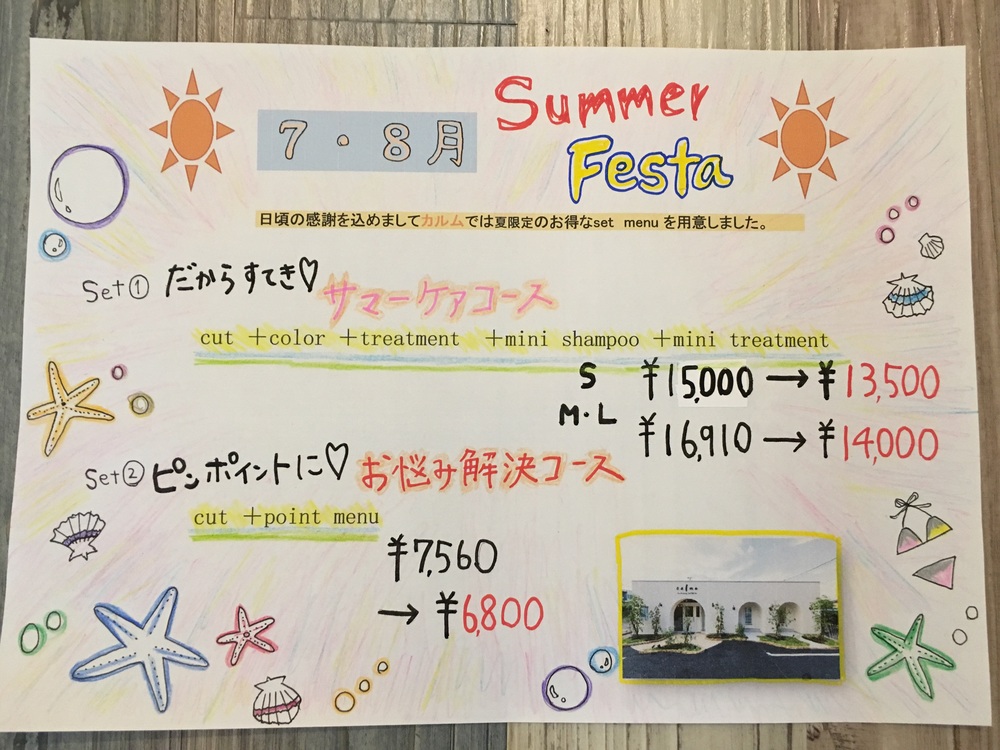 7・8月
Summer
Festa
日頃の感謝を込めましてカルムでは夏限定のお得なset menuを用意しました。
Set① だからすてき♡
サマーケアコース
cut +color +treatment +mini shampoo +mini treatment
S ¥15,000→¥13,500
M・L ¥16,910→¥14,000
Set② ピンポイントに♡ お悩み解決コース
cut +point menu
¥7,560
→¥6,800